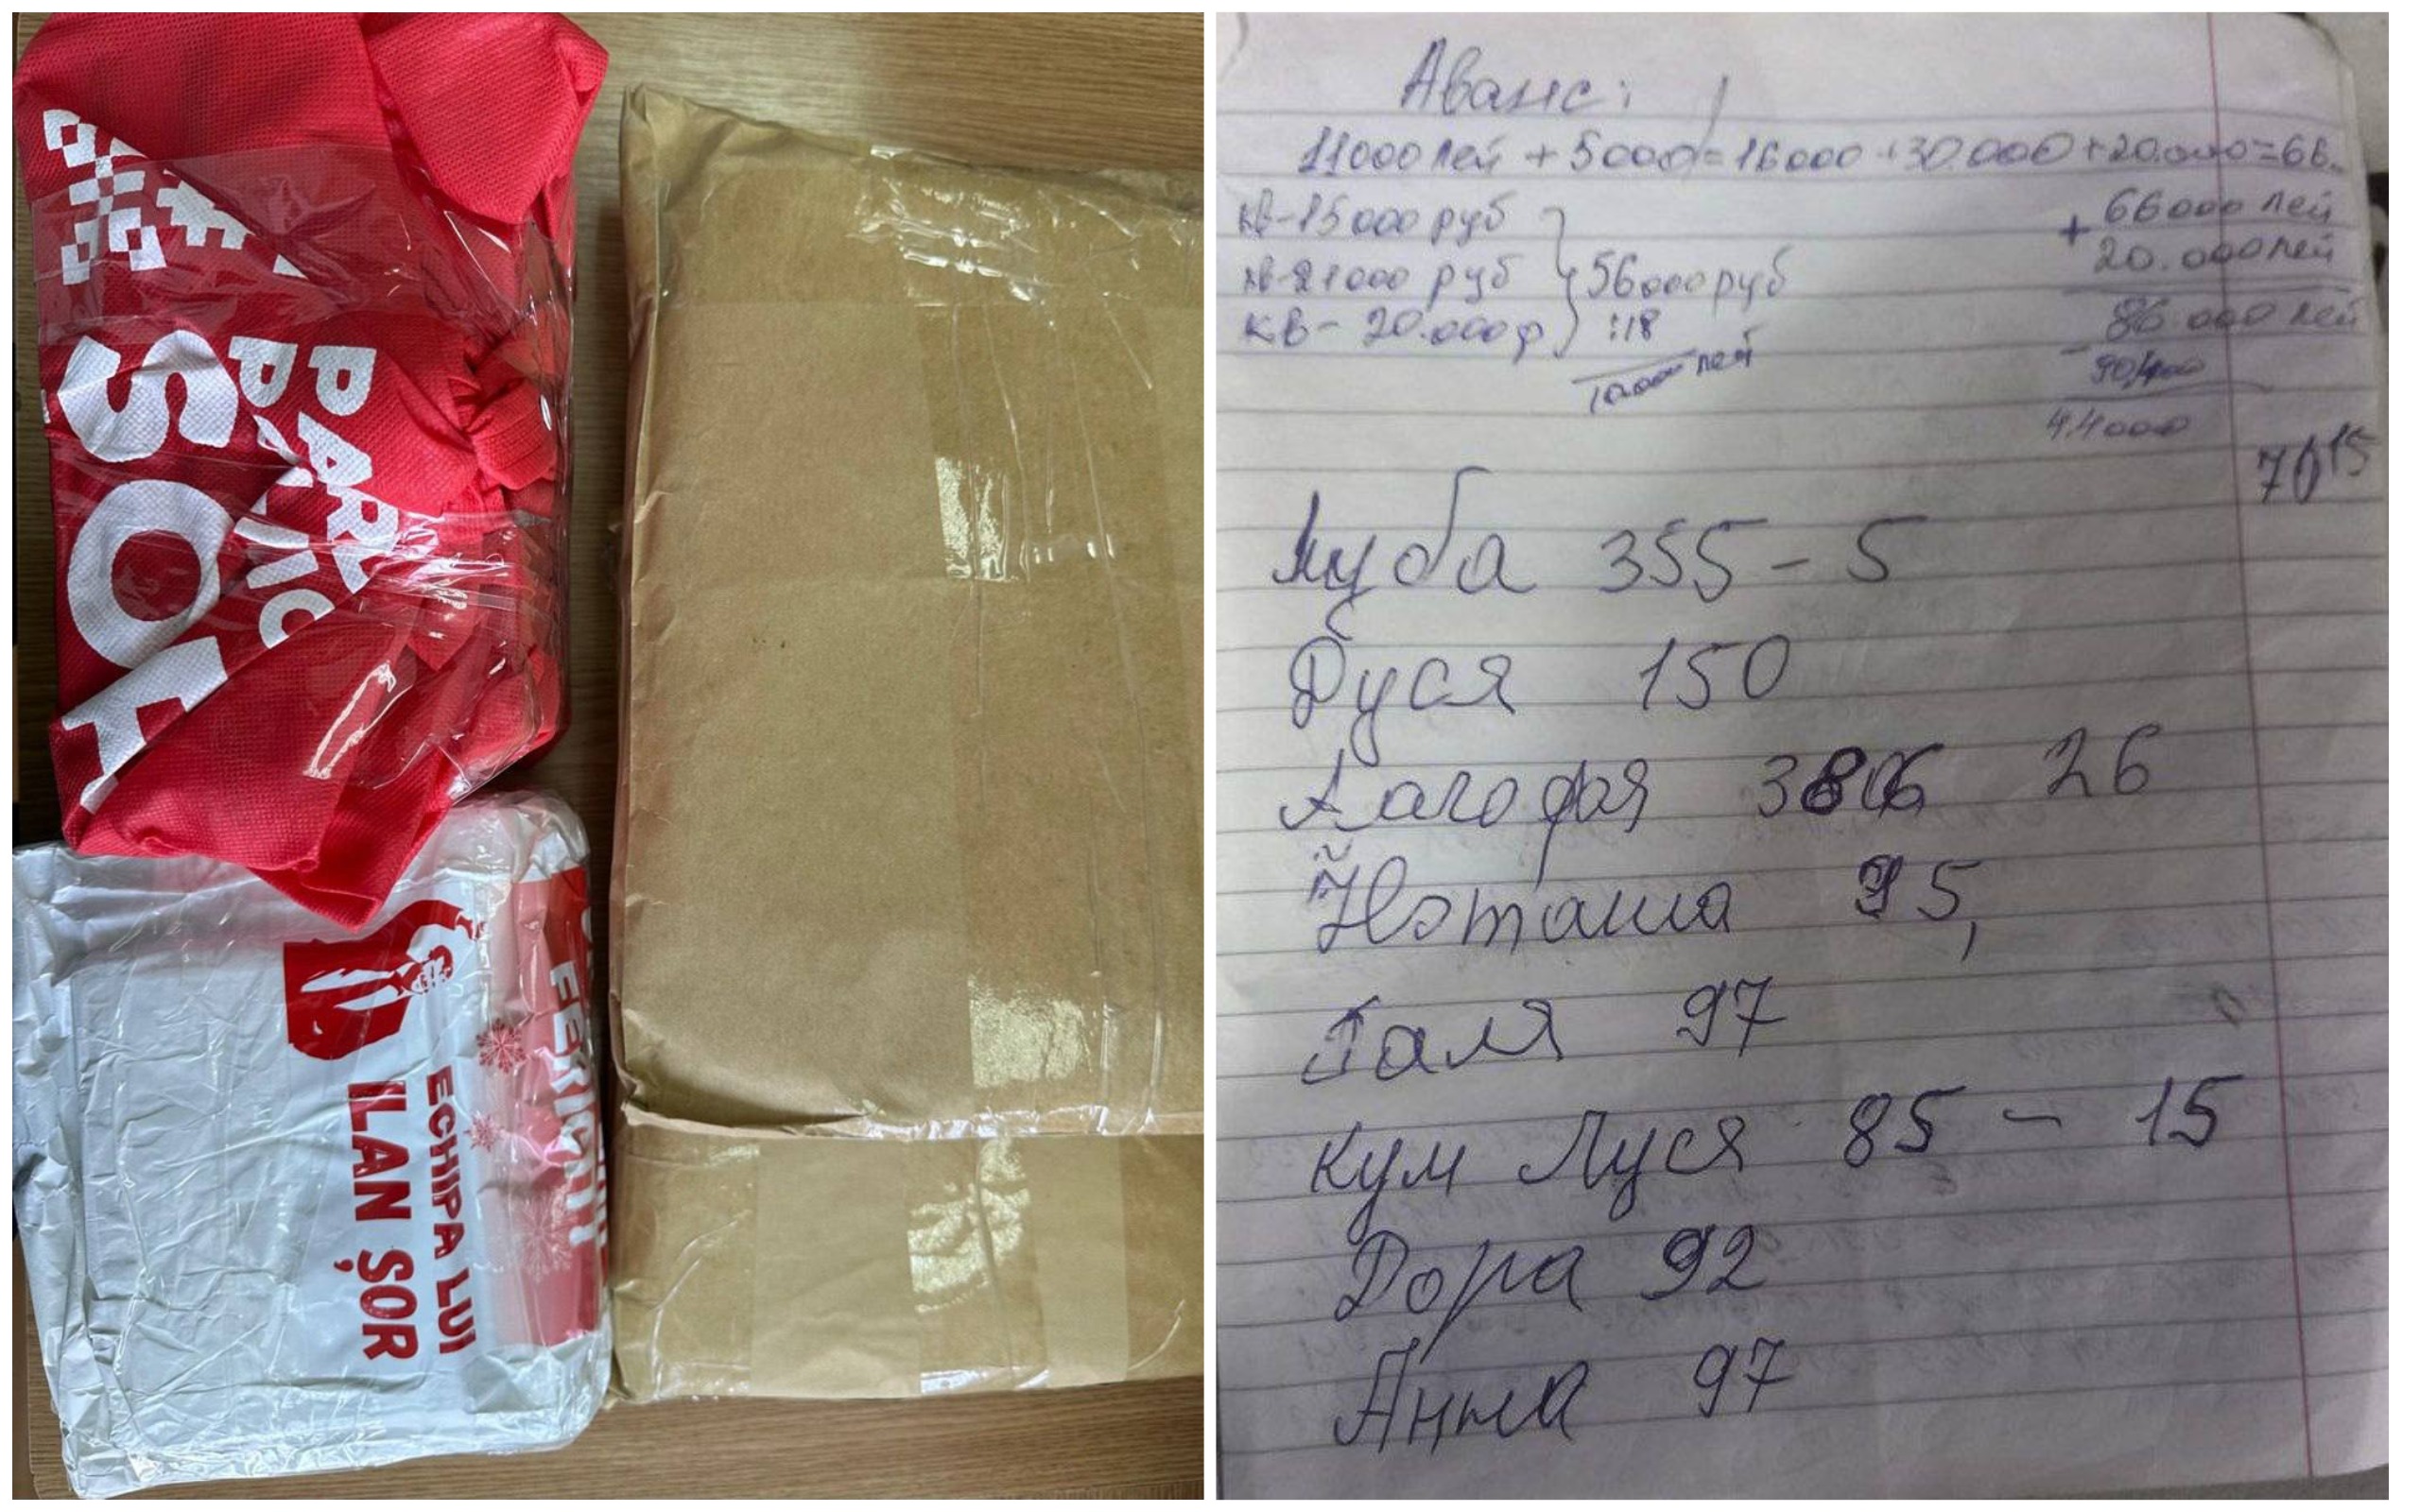 PAR
P
ȘOR
ECHIPA LUI
ILAN ȘOR
FERICIȚI
Аванс:
11000 лей + 5000 = 16000 + 30.000 + 20.000 = 66
кв-15000 руб
кв-21000 руб
кв - 20.000 р
56000 руб
:18
10000 лей
66000 лей
+ 20.000 лей
86.000 лей
44000
70 15
Луба 355 - 5
Дуся 150
26
Наташа 95,
Галя 97
Кум Люся 85 - 15
Дора 92
Анна 97